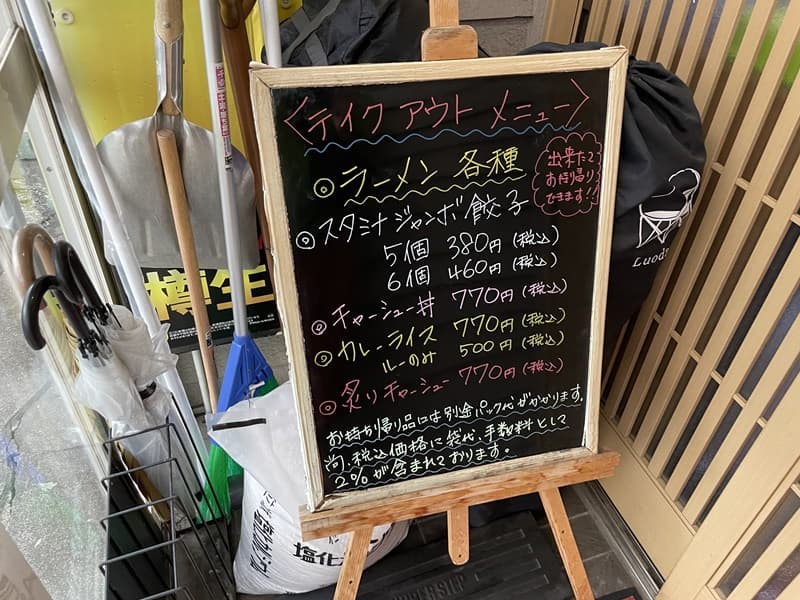 <テイク アウト メニュー>
◎ラーメン 各種
出来たて
お持帰り
できます!!
◎スタミナジャンボ餃子
5個 380円(税込)
6個 460円(税込)
◎チャーシュー丼 770円(税込)
◎カレーライス 770円(税込)
ルーのみ 500円(税込)
◎炙りチャーシュー 770円(税込)
お持ち帰り品には別途パック代がかかります。
尚、税込価格に袋代、手数料として
2%が含まれております。
樽生
塩化